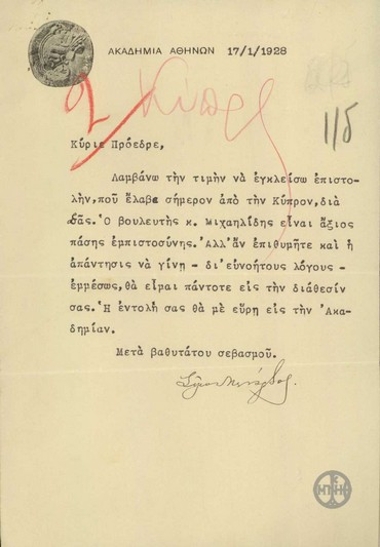 ΑΚΑΔΗΜΙΑ ΑΘΗΝΩΝ 17/1/1928
2 Κύπρ
11δ
Κύριε Πρόεδρε,
Λαμβάνω τὴν τιμὴν νὰ ἐγκλείσω ἐπιστο-
λὴν,ποὺ ἔλαβα σήμερον ἀπὸ τὴν Κύπρον,διὰ
Σᾶς. Ὁ βουλευτὴς κ. Μιχαηλίδης εἶναι ἄξιος
πάσης ἐμπιστοσύνης. Ἀλλ'ἂν ἐπιθυμῆτε καὶ ἡ
ἀπάντησις νὰ γίνῃ - δι'εὐνοήτους λόγους -
ἐμμέσως, θὰ εἶμαι πάντοτε εἰς τὴν διάθεσίν
σας. Ἡ ἐντολή σας θὰ μὲ εὕρῃ εἰς τὴν Ἀκα-
δημίαν.
Μετὰ βαθυτάτου σεβασμοῦ.
Σίμος Μενάρδος